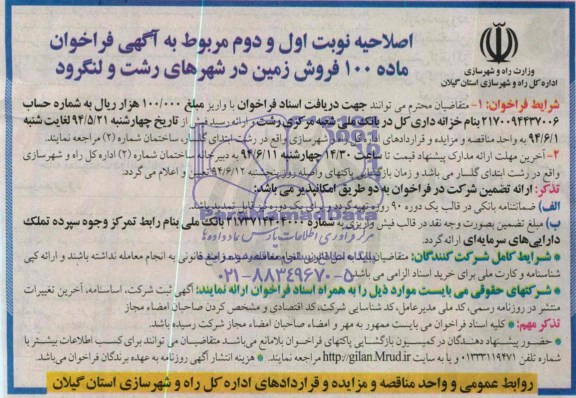 اصلاحیه نوبت اول و دوم مربوط به آگهی فراخوان
ماده ۱۰۰ فروش زمین در شهرهای رشت و لنگرود
وزارت راه و شهرسازی
اداره کل راه و شهرسازی استان گیلان
شرایط فراخوان: ۱- متقاضیان محترم می توانند جهت دریافت اسناد فراخوان با واریز مبلغ ۱۰۰/۰۰۰ هزار ریال به شماره حساب
۲۱۷۰۰۹۴۴۳۷۰۰۶ بنام خزانه داری کل در بانک ملی شعبه مرکزی رشت و ارائه رسید فیش از تاریخ چهارشنبه ۹۴/۵/۲۱ لغایت شنبه
۹۴/۶/۱ به واحد مناقصه و مزایده و قراردادهای اداره کل راه و شهرسازی واقع در رشت ابتدای گلسار، ساختمان شماره (۲) مراجعه نمایند.
۲- آخرین مهلت ارائه مدارک پیشنهاد قیمت تا ساعت ۱۴/۳۰ چهارشنبه ۹۴/۶/۱۱ به دبیرخانه ساختمان شماره (۲) اداره کل راه و شهرسازی
واقع در رشت ابتدای گلسار می باشد و زمان بازگشایی پاکتهای واصله روز پنجشنبه ۹۴/۶/۱۲ تعیین و اعلام می گردد.
تذکر: ارائه تضمین شرکت در فراخوان به دو طریق امکانپذیر می باشد:
الف) ضمانتنامه بانکی در قالب یک دوره ۹۰ روزه تهیه گردد و برای یک دوره نیز قابل تمدید باشد.
ب) مبلغ تضمین بصورت وجه نقد در قالب فیش واریزی به شماره ۲۱۷۳۷۱۲۴۰۴۰۰۰ بانک ملی بنام رابط تمرکز وجوه سپرده تملک
دارایی‌های سرمایه‌ای ارائه گردد.
ParsNamadData
مرکز فرآوری اطلاعات پارس نماد داده ها
۰۲۱-۸۸۳۴۹۶۷۰-۵
• شرایط کامل شرکت کنندگان: متقاضیان قانونی به انجام معامله نداشته باشند و ارائه کپی
شناسنامه و کارت ملی برای خرید اسناد الزامی می باشد.
• شرکتهای حقوقی می بایست موارد ذیل را به همراه اسناد فراخوان ارائه نمایند: آگهی ثبت شرکت، اساسنامه، آخرین تغییرات
منتشر در روزنامه رسمی، کد ملی مدیرعامل، کد شناسایی شرکت، کد اقتصادی و مشخص کردن صاحبان امضاء مجاز
تذکر مهم: • کلیه اسناد فراخوان می بایست ممهور به مهر و امضاء صاحبان امضاء مجاز شرکت رسیده باشد.
• حضور پیشنهاد دهندگان در کمیسیون بازگشایی پاکتهای فراخوان بلامانع می‌باشد. متقاضیان می توانند برای کسب اطلاعات بیشتر با
شماره تلفن ۰۱۳۳۳۱۱۹۴۷۱ و یا به سایت http://gilan.Mrud.ir مراجعه نمایند. • هزینه انتشار آگهی روزنامه به عهده برندگان فراخوان می‌باشد.
روابط عمومی و واحد مناقصه و مزایده و قراردادهای اداره کل راه و شهرسازی استان گیلان